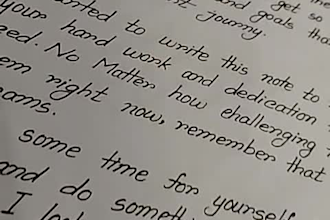 get so
st journy.
and goals tha
rted to write this note to
your hard work and dedication
eed. No Matter how challenging
em right now, remember that
eams.
some time for yourself
and do someth
I lo